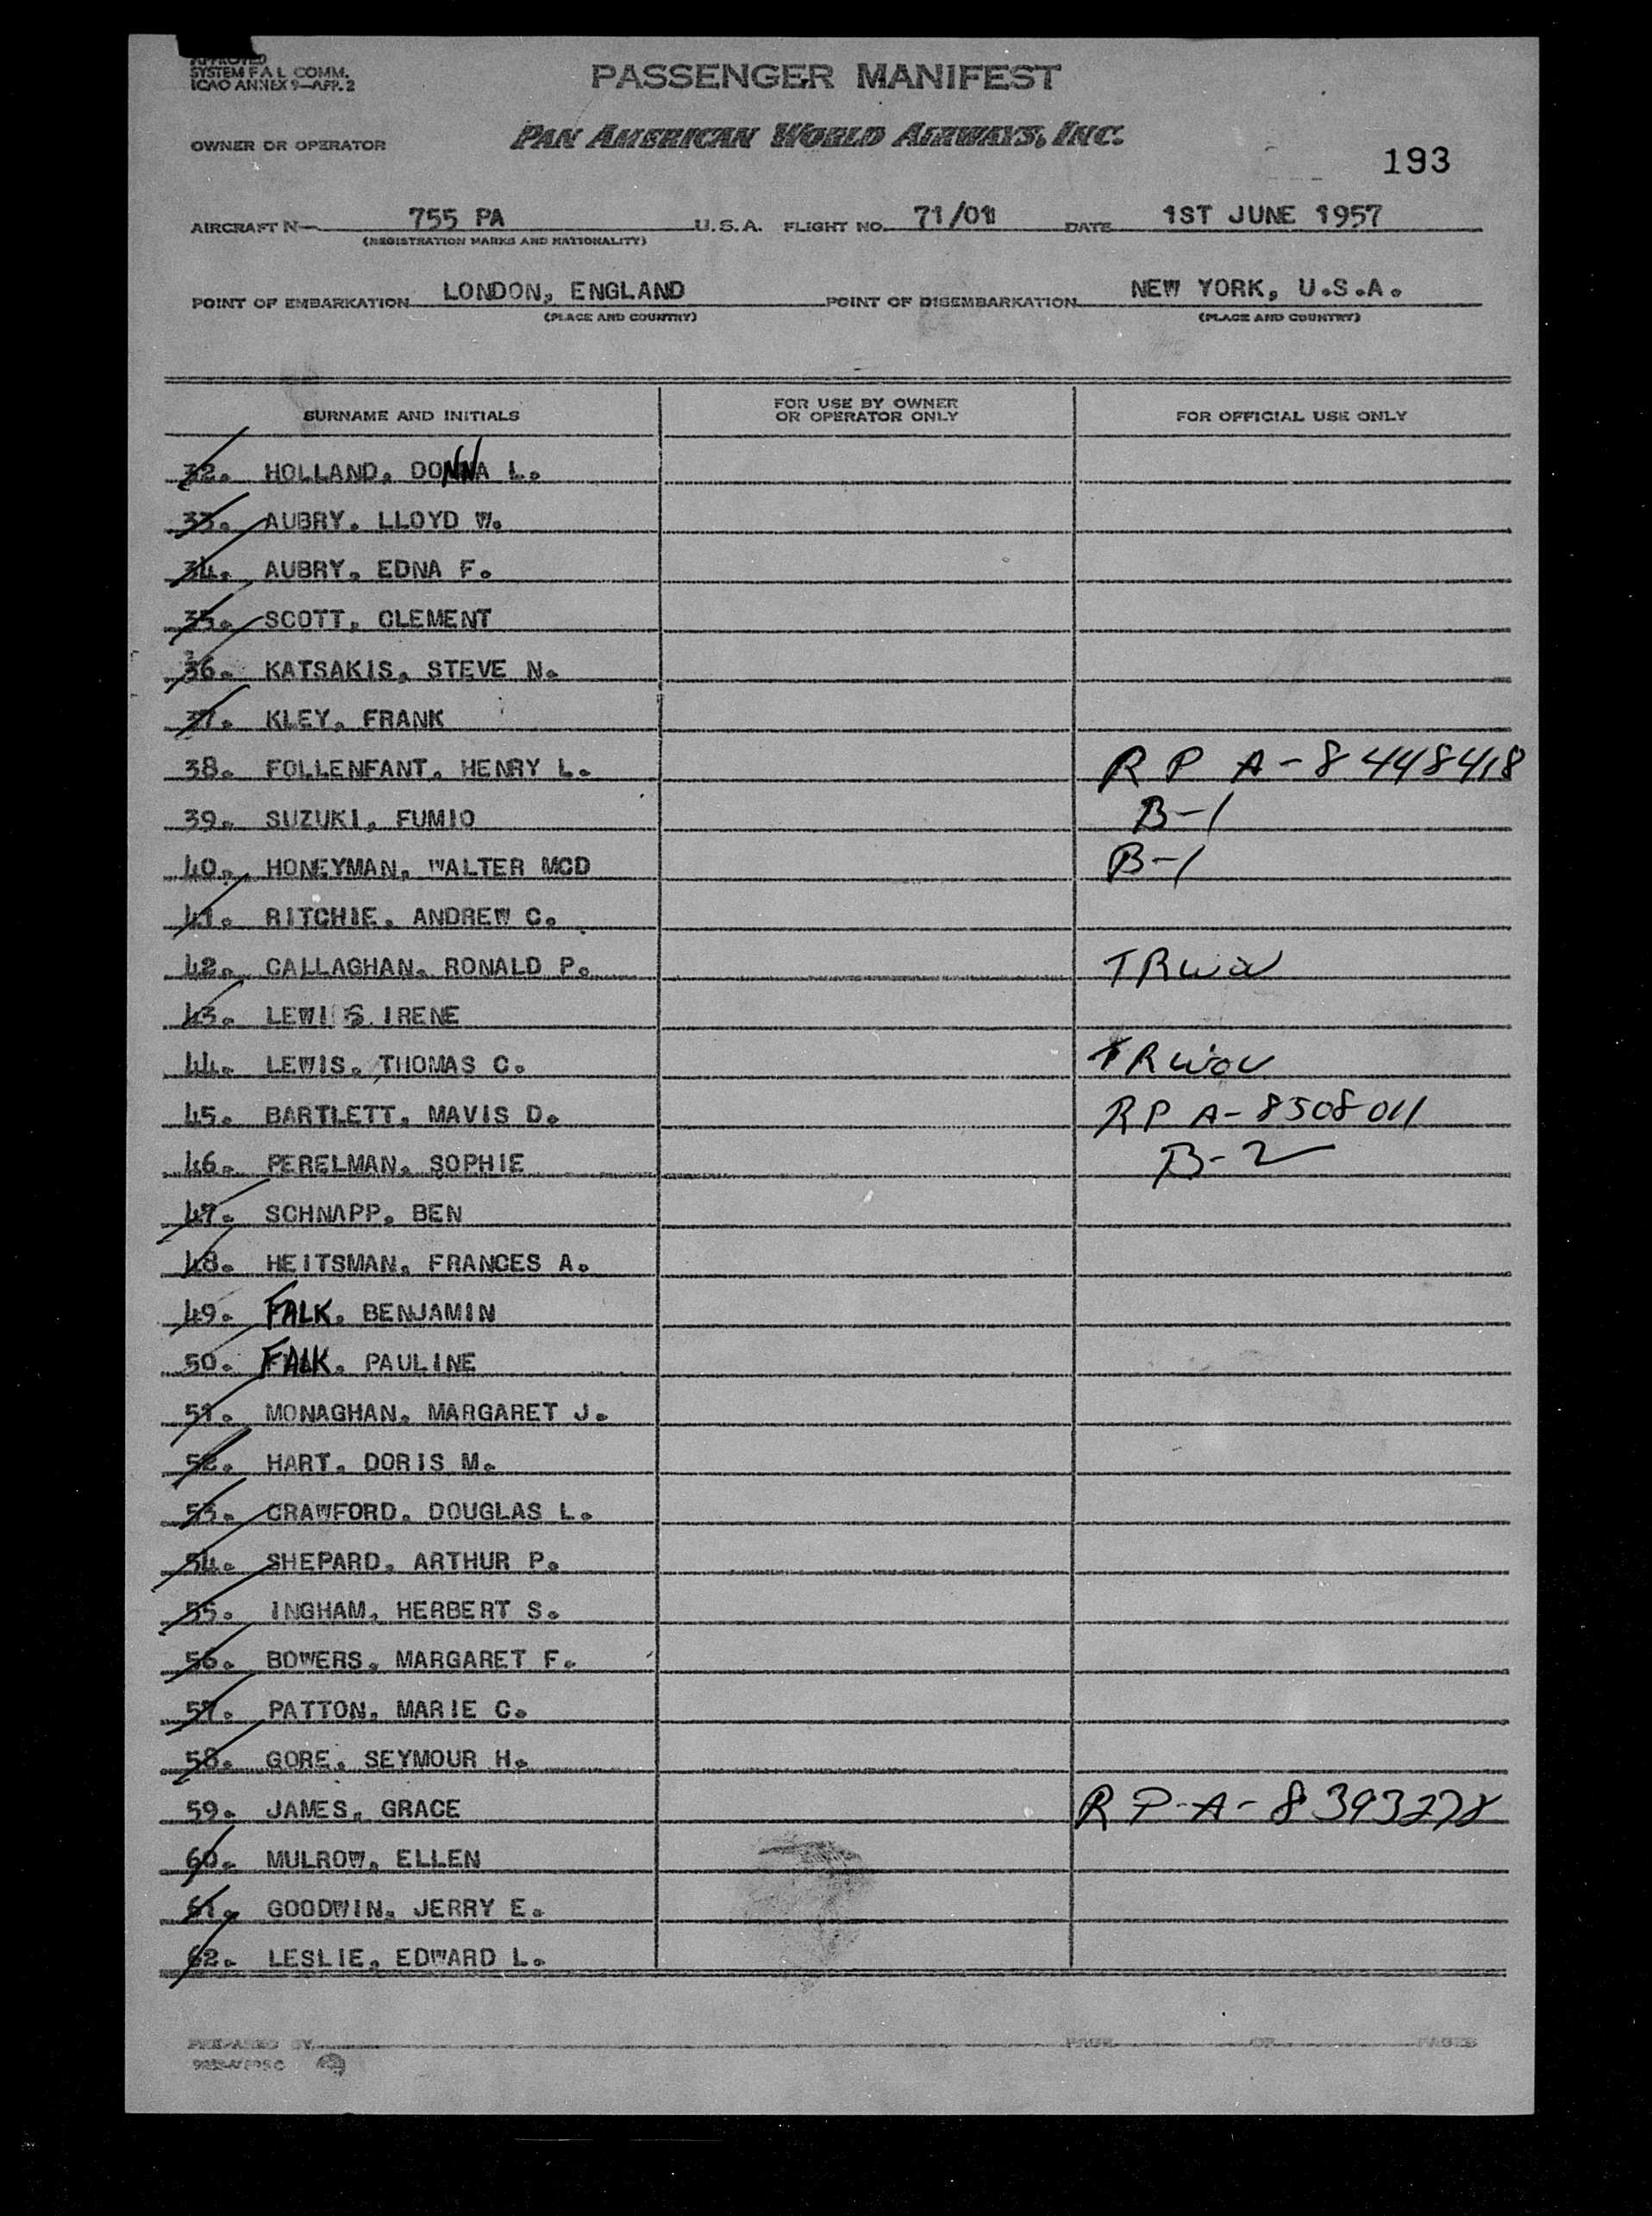 APPROVED
SYSTEM F A L COMM.
ICAO ANNEX 9—APP. 2
PASSENGER MANIFEST
OWNER OR OPERATOR PAN AMERICAN WORLD AIRWAYS, INC.
193
AIRCRAFT N— 755 PA U.S.A. FLIGHT NO. 71/01 DATE 1ST JUNE 1957
(REGISTRATION MARKS AND NATIONALITY)
POINT OF EMBARKATION LONDON, ENGLAND POINT OF DISEMBARKATION NEW YORK, U.S.A.
(PLACE AND COUNTRY) (PLACE AND COUNTRY)
SURNAME AND INITIALS FOR USE BY OWNER OR OPERATOR ONLY FOR OFFICIAL USE ONLY
32. HOLLAND, DONNA L.
33. AUBRY, LLOYD W.
34. AUBRY, EDNA F.
35. SCOTT, CLEMENT
36. KATSAKIS, STEVE N.
37. KLEY, FRANK
38. FOLLENFANT, HENRY L. R P A-8448418
39. SUZUKI, FUMIO B-1
40. HONEYMAN, WALTER MCD B-1
41. RITCHIE, ANDREW C.
42. CALLAGHAN, RONALD P. TRWOV
43. LEWIS IRENE
44. LEWIS, THOMAS C. TRWOV
45. BARTLETT, MAVIS D. RP A-8508011
46. PERELMAN, SOPHIE B-2
47. SCHNAPP, BEN
48. HEITSMAN, FRANCES A.
49. FALK, BENJAMIN
50. FALK, PAULINE
51. MONAGHAN, MARGARET J.
52. HART, DORIS M.
53. CRAWFORD, DOUGLAS L.
54. SHEPARD, ARTHUR P.
55. INGHAM, HERBERT S.
56. BOWERS, MARGARET F.
57. PATTON, MARIE C.
58. GORE, SEYMOUR H.
59. JAMES, GRACE R P-A-8393278
60. MULROW, ELLEN
61. GOODWIN, JERRY E.
62. LESLIE, EDWARD L.
PREPARED BY PAGE OF PAGES